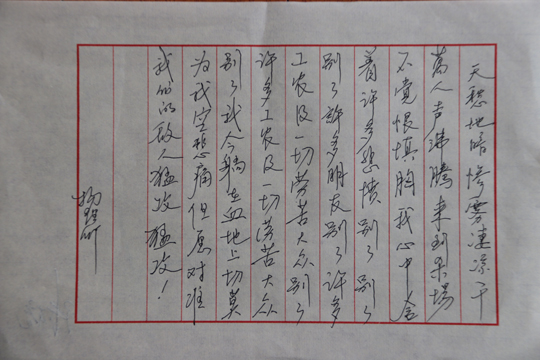 天愁地暗惨雾凄凉千
万人声沸腾来到杀场
不觉恨填胸我心中含
着许多悲愤别了别了
别了许多朋友别了许多
工农及一切劳苦大众别了
许多工农及一切劳苦大众
别了我今躺在血地上切莫
为我空悲痛但愿对准
我们的敌人猛攻猛攻！